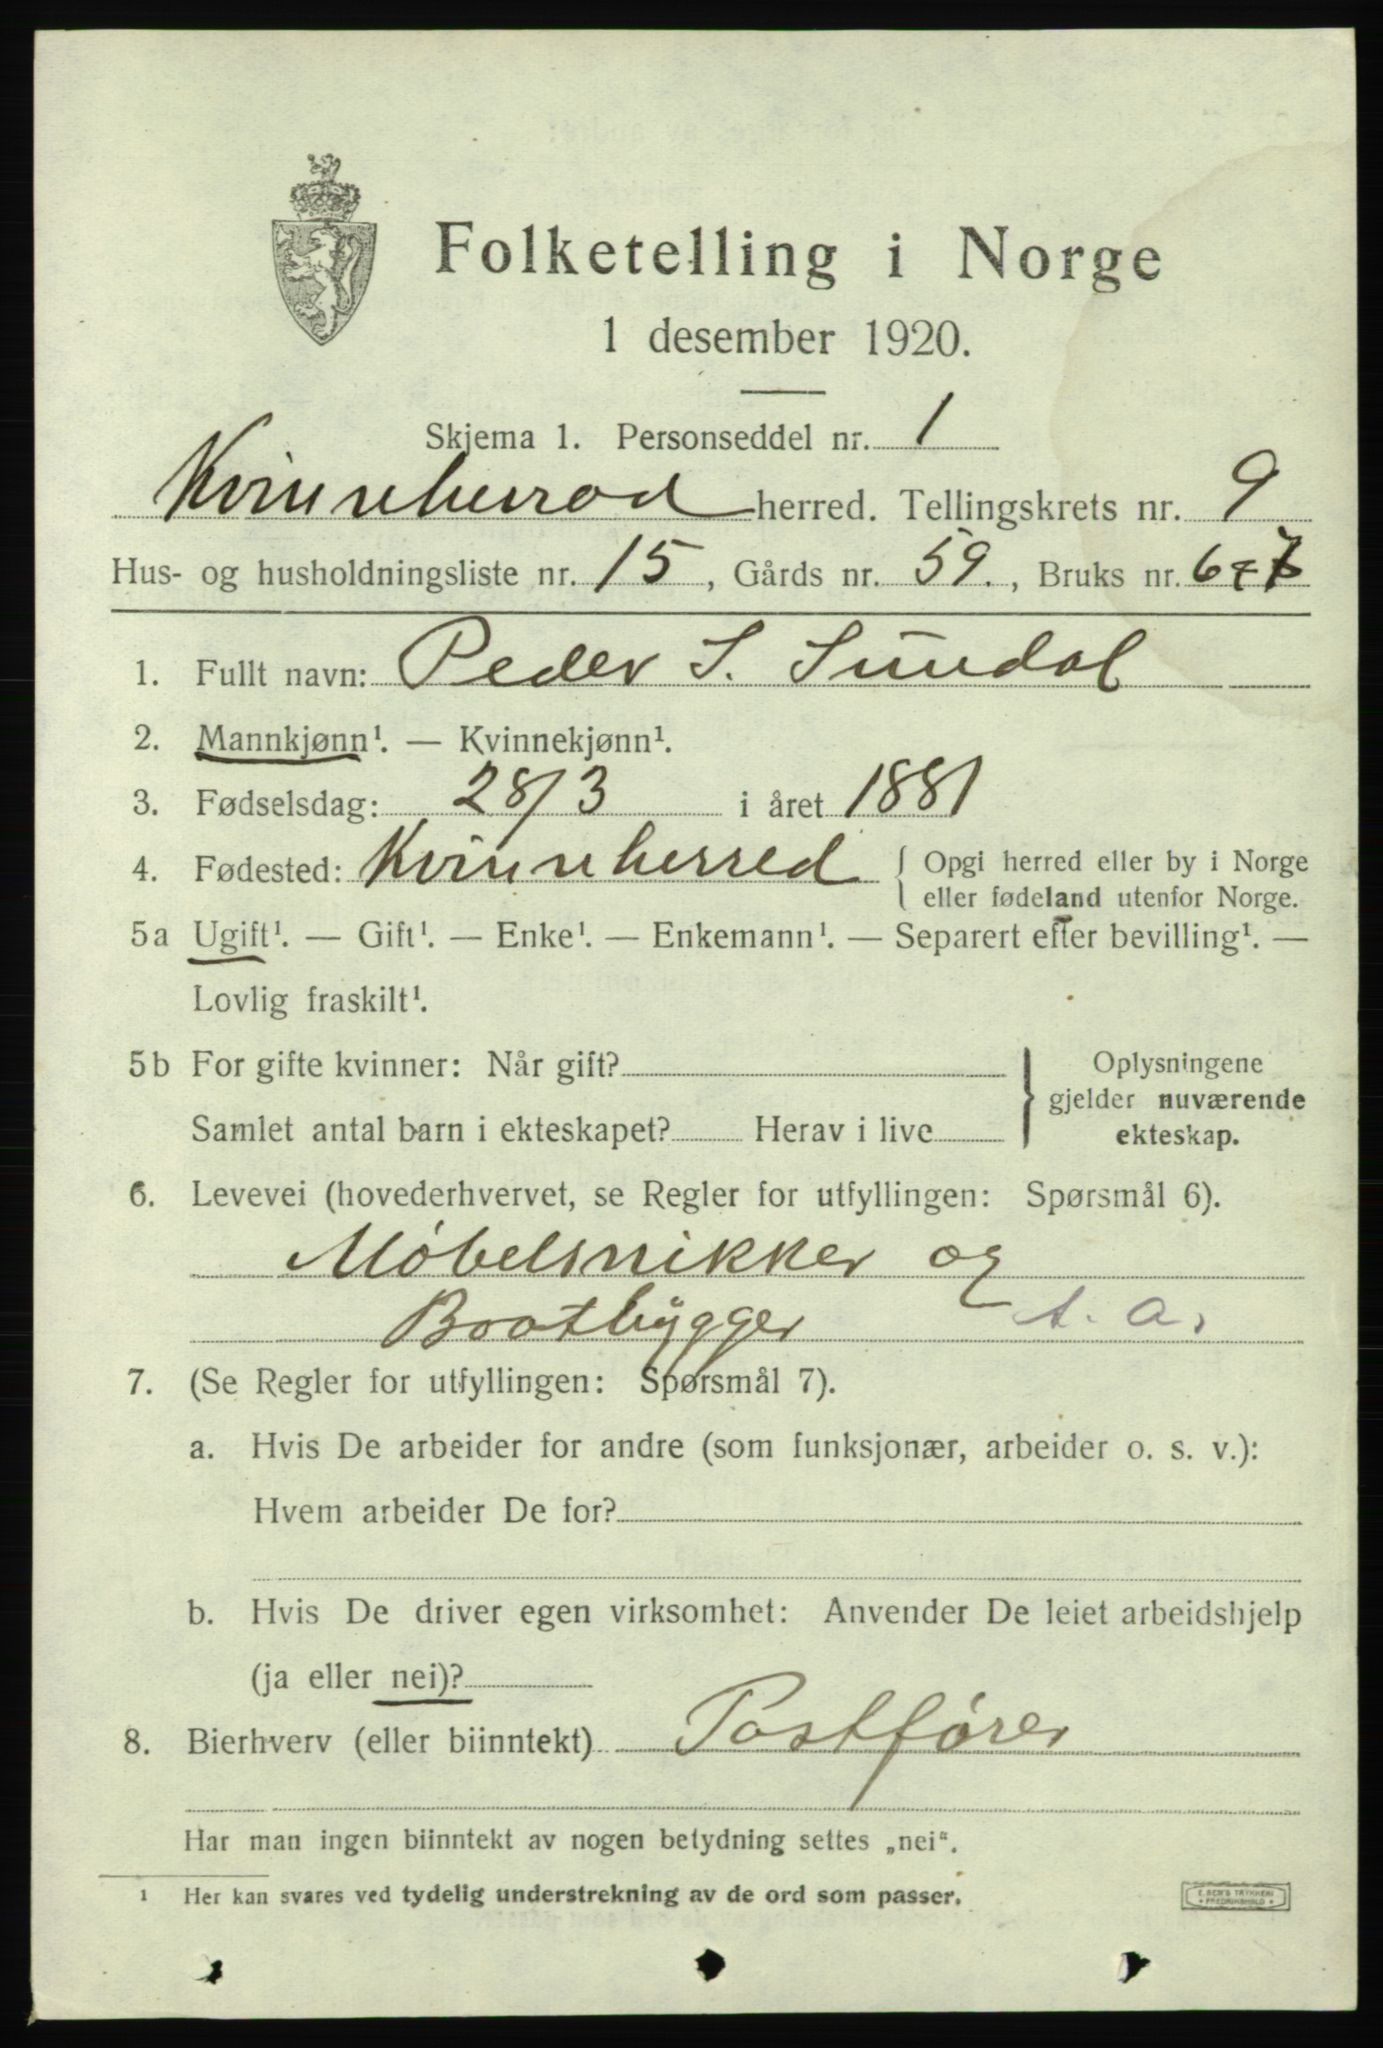 Folketelling i Norge
1 desember 1920.
Skjema 1. Personseddel nr. 1
Kvinneherrad herred. Tellingskrets nr. 9
Hus- og husholdningsliste nr. 15, Gårds nr. 59., Bruks nr.
1. Fullt navn: Peder S. Sundal
2. Mannkjønn¹. — Kvinnekjønn¹.
3. Fødselsdag: 28/3 i året 1881
4. Fødested: Kvinneherred { Opgi herred eller by i Norge
eller fødeland utenfor Norge.
5a Ugift¹. — Gift¹. — Enke¹. — Enkemann¹. — Separert efter bevilling¹. —
Lovlig fraskilt¹.
5b For gifte kvinner: Når gift? } Oplysningene
gjelder nuværende
Samlet antal barn i ekteskapet? Herav i live ekteskap.
6. Levevei (hovederhvervet, se Regler for utfyllingen: Spørsmål 6).
Møbelsnikker og
Baatbygger s. a.
7. (Se Regler for utfyllingen: Spørsmål 7).
a. Hvis De arbeider for andre (som funksjonær, arbeider o. s. v.):
Hvem arbeider De for?
b. Hvis De driver egen virksomhet: Anvender De leiet arbeidshjelp
(ja eller nei)?
8. Bierhverv (eller biinntekt) Postfører
Har man ingen biinntekt av nogen betydning settes „nei“.
¹ Her kan svares ved tydelig understrekning av de ord som passer.
E. SEM'S TRYKKERI
FREDRIKSHALD